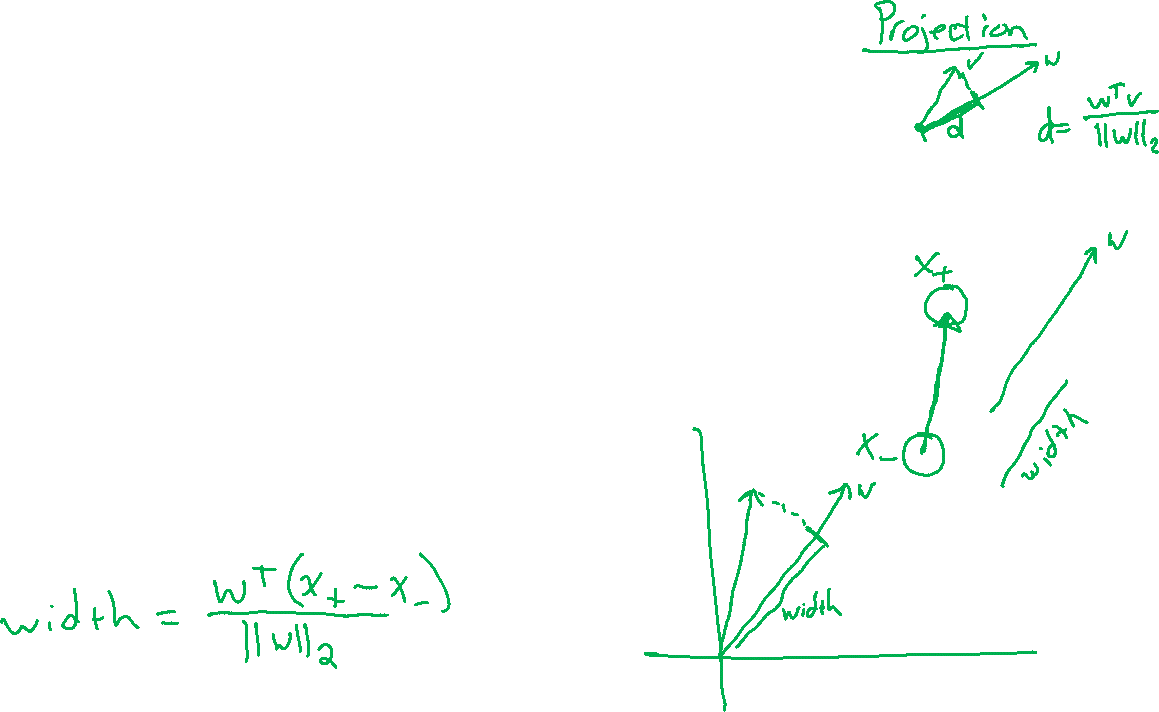 Projection
v
w
d
d = wᵀv / ||w||₂
w
x₊
x₋
width
w
width
width = wᵀ(x₊ - x₋) / ||w||₂